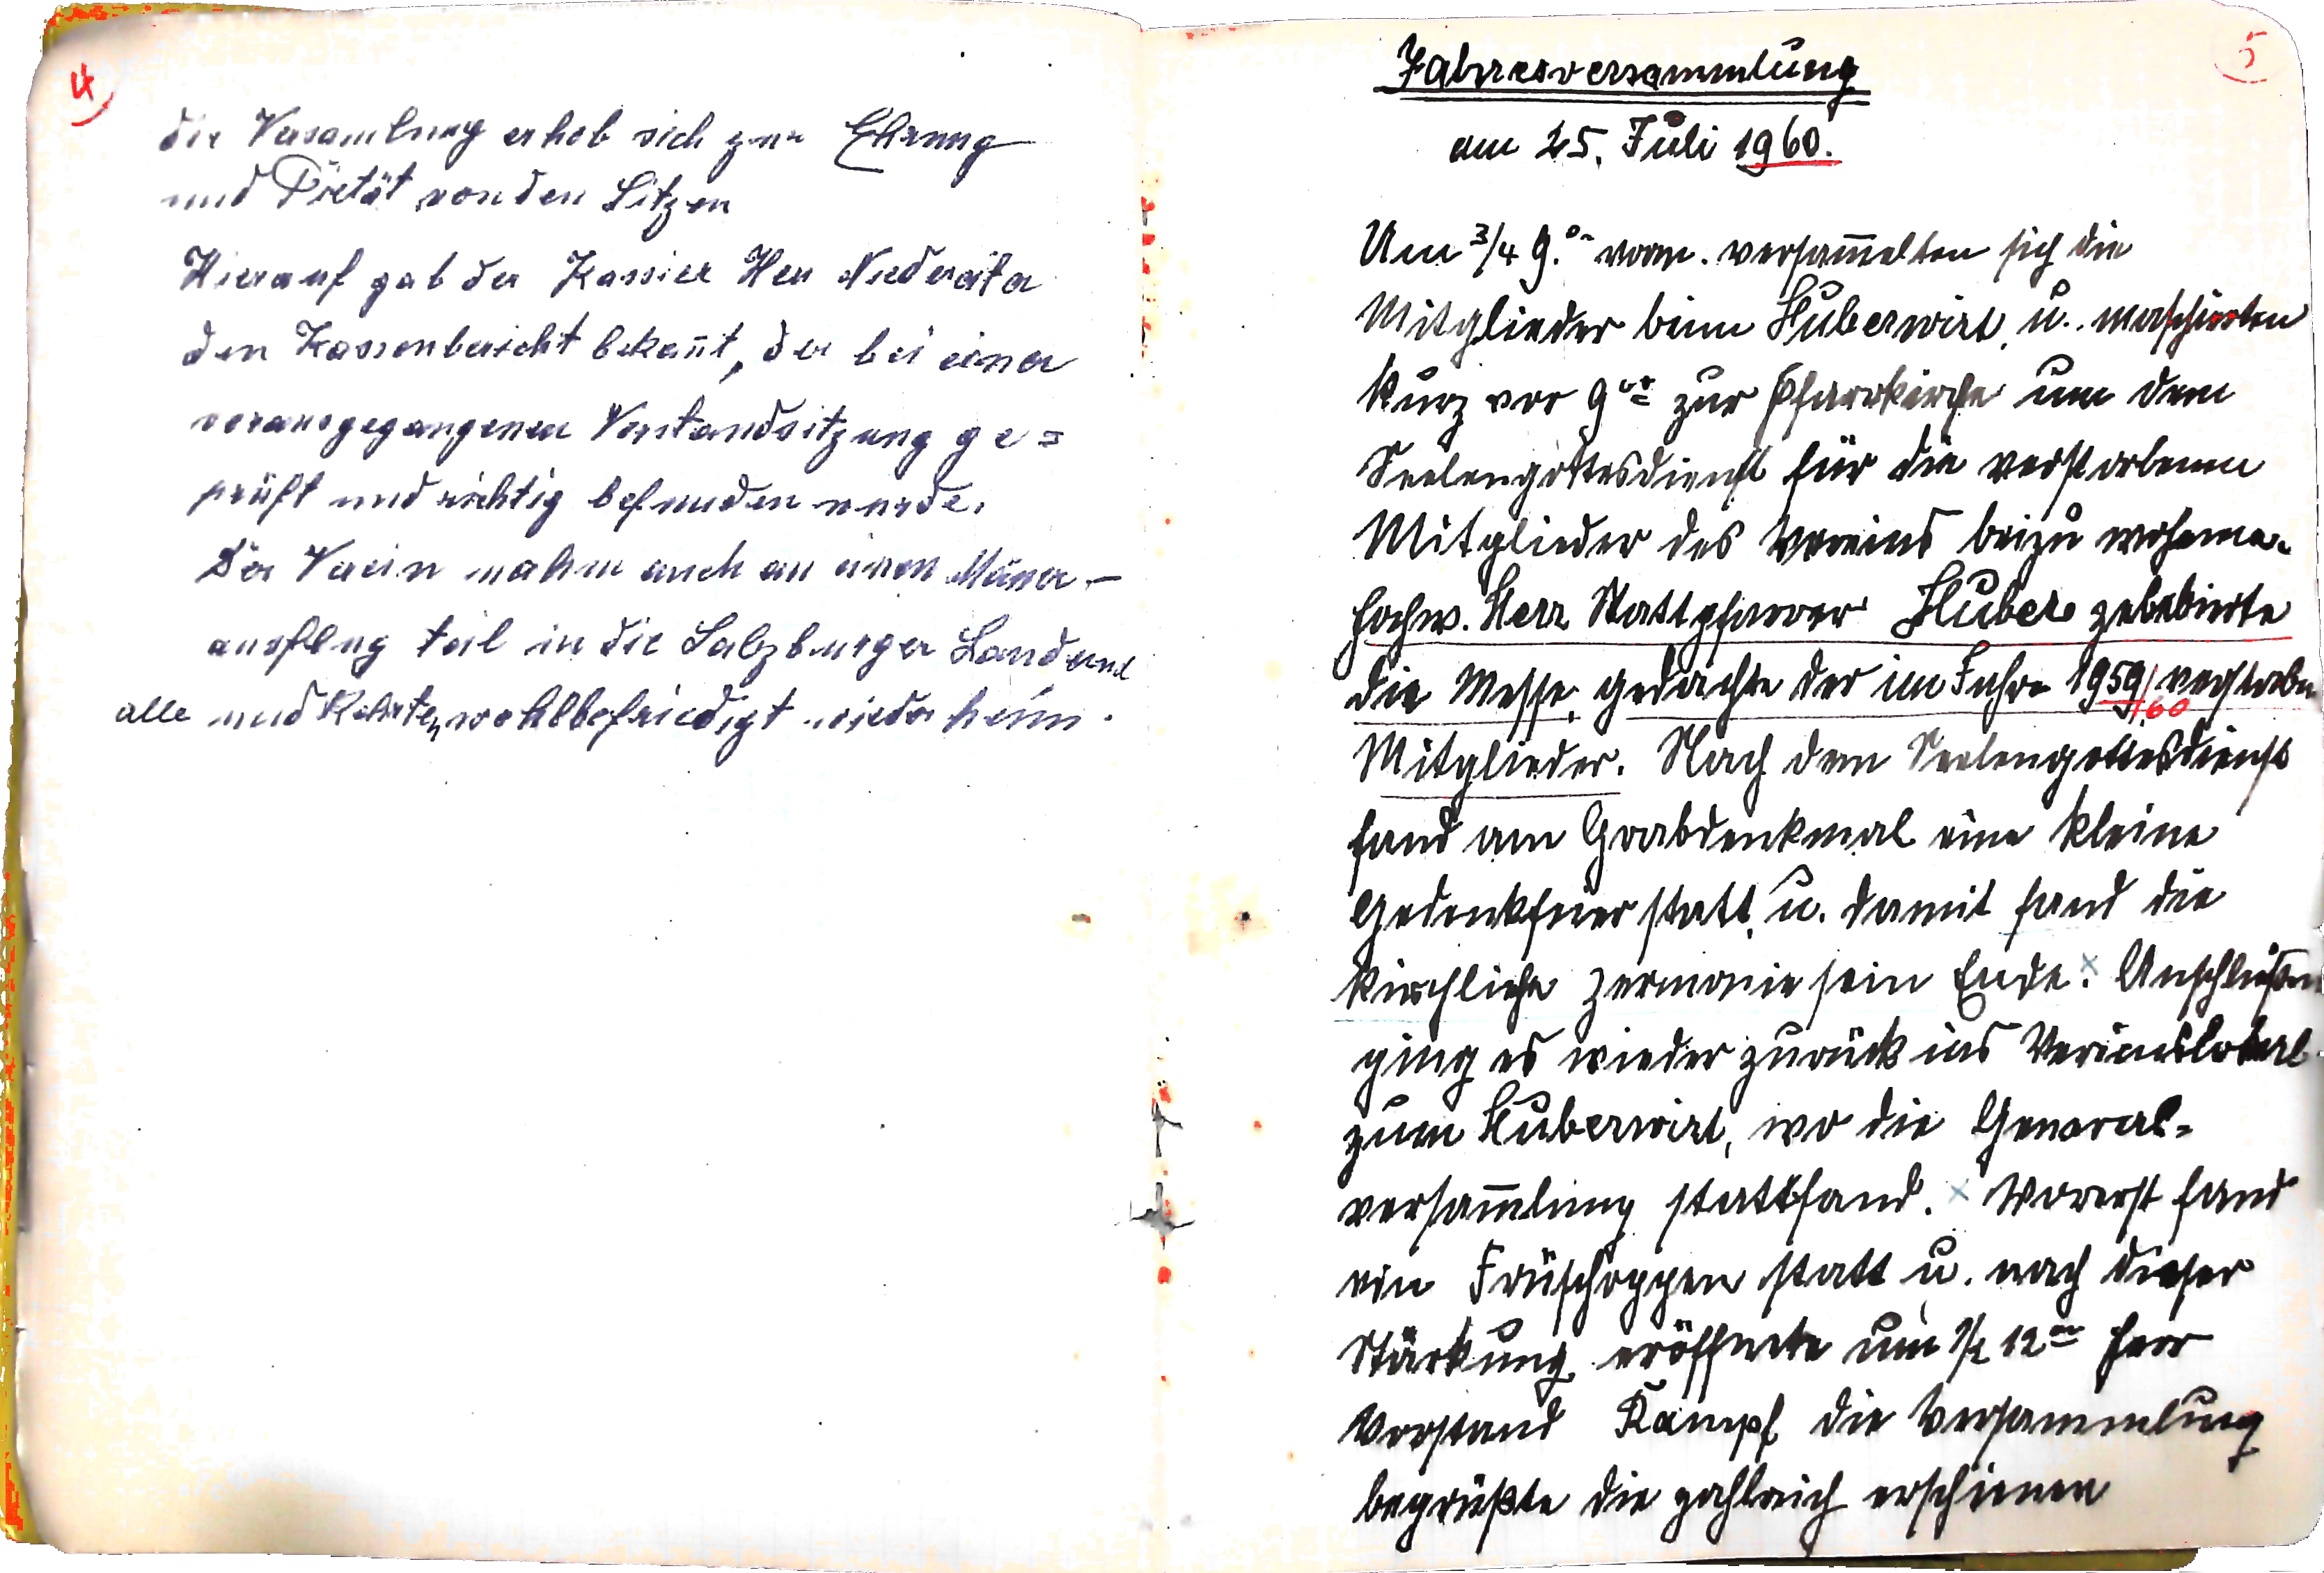 4
die Versamlung erhob sich zur Ehrung
und Pietät von den Sitzen
Hierauf gab der Kassier Herr Niedereita
den Kassenbericht bekan̄t, der bei einer
vorausgegangenen Vorstandsitzung ge=
prüft und richtig befunden wurde.
Der Verein nahm auch an einen Män̄er-
ausflug teil in die Salzburger Land und
alle und kehrten wohlbefriedigt wieder heim.
5
Jahresversammlung
am 25. Juli 1960.
Um 3/4 9.°° vorm. versam̄elten sich die
Mitglieder beim Huberwirt, u. maschierten
kurz vor 9 Uhr zur Pfarrkirche um dem
Seelengottesdienst für die verstorbenen
Mitglieder des Vereins beizu wohnen.
Hochw. Herr Stattpfarrer Huber zelebrierte
die Messe, gedachte der im Jahre 1959/60 verstorben
Mitglieder. Nach dem Seelengottesdienst
fand am Grabdenkmal eine kleine
Gedenkfeier statt, u. damit fand die
kirchliche Zermonie sein Ende. x Anschließend
ging es wieder zurück ins Vereinslokal
zum Huberwirt, wo die General-
versam̄lung stattfand. x Vorerst fand
ein Früschoppen statt u. nach dieser
Stärkung eröffnete um 1/2 12 Uhr Herr
Vorstand Kampf die Versammlung
begrüßte die zahlreich erschienen